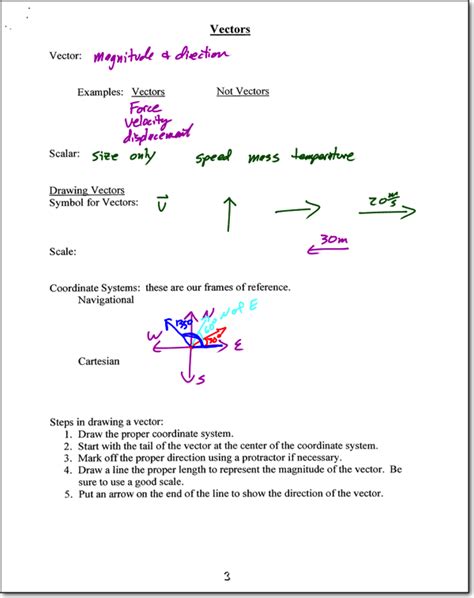 Vectors
Vector: magnitude & direction
Examples: Vectors Not Vectors
Force
velocity
displacement
Scalar: size only speed mass temperature
Drawing Vectors
Symbol for Vectors: V 20 m/s
30m
Scale:
Coordinate Systems: these are our frames of reference.
Navigational
N of E
N
135°
W E
S
Cartesian
Steps in drawing a vector:
1. Draw the proper coordinate system.
2. Start with the tail of the vector at the center of the coordinate system.
3. Mark off the proper direction using a protractor if necessary.
4. Draw a line the proper length to represent the magnitude of the vector. Be
sure to use a good scale.
5. Put an arrow on the end of the line to show the direction of the vector.
3